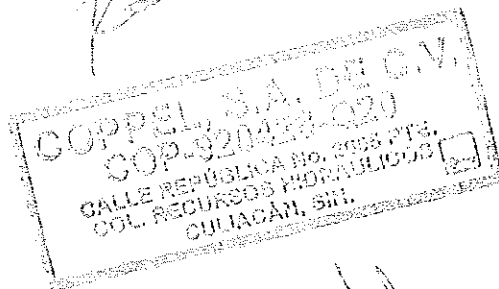 COPPEL, S.A. DE C.V.
COP-920428-Q20
CALLE REPÚBLICA No. 2855 PTE.
COL. RECURSOS HIDRAULICOS
CULIACÁN, SIN.